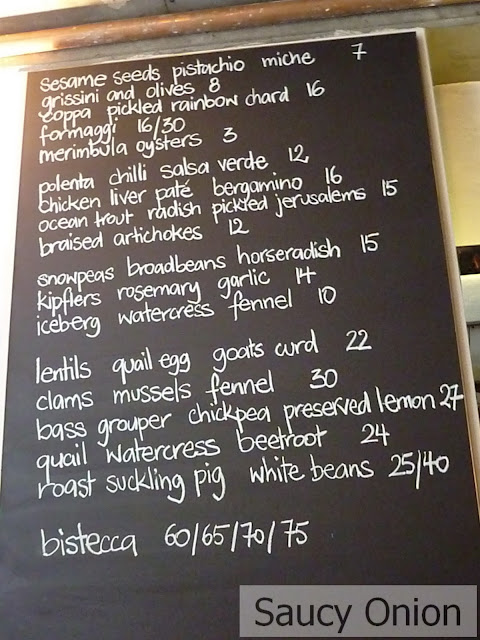 sesame seeds pistachio miche 7
grissini and olives 8
coppa pickled rainbow chard 16
formaggi 16/30
merimbula oysters 3
polenta chilli salsa verde 12
chicken liver paté bergamino 16
ocean trout radish pickled jerusalems 15
braised artichokes 12
snowpeas broadbeans horseradish 15
kipflers rosemary garlic 14
iceberg watercress fennel 10
lentils quail egg goats curd 22
clams mussels fennel 30
bass grouper chickpea preserved lemon 27
quail watercress beetroot 24
roast suckling pig white beans 25/40
bistecca 60/65/70/75
Saucy Onion